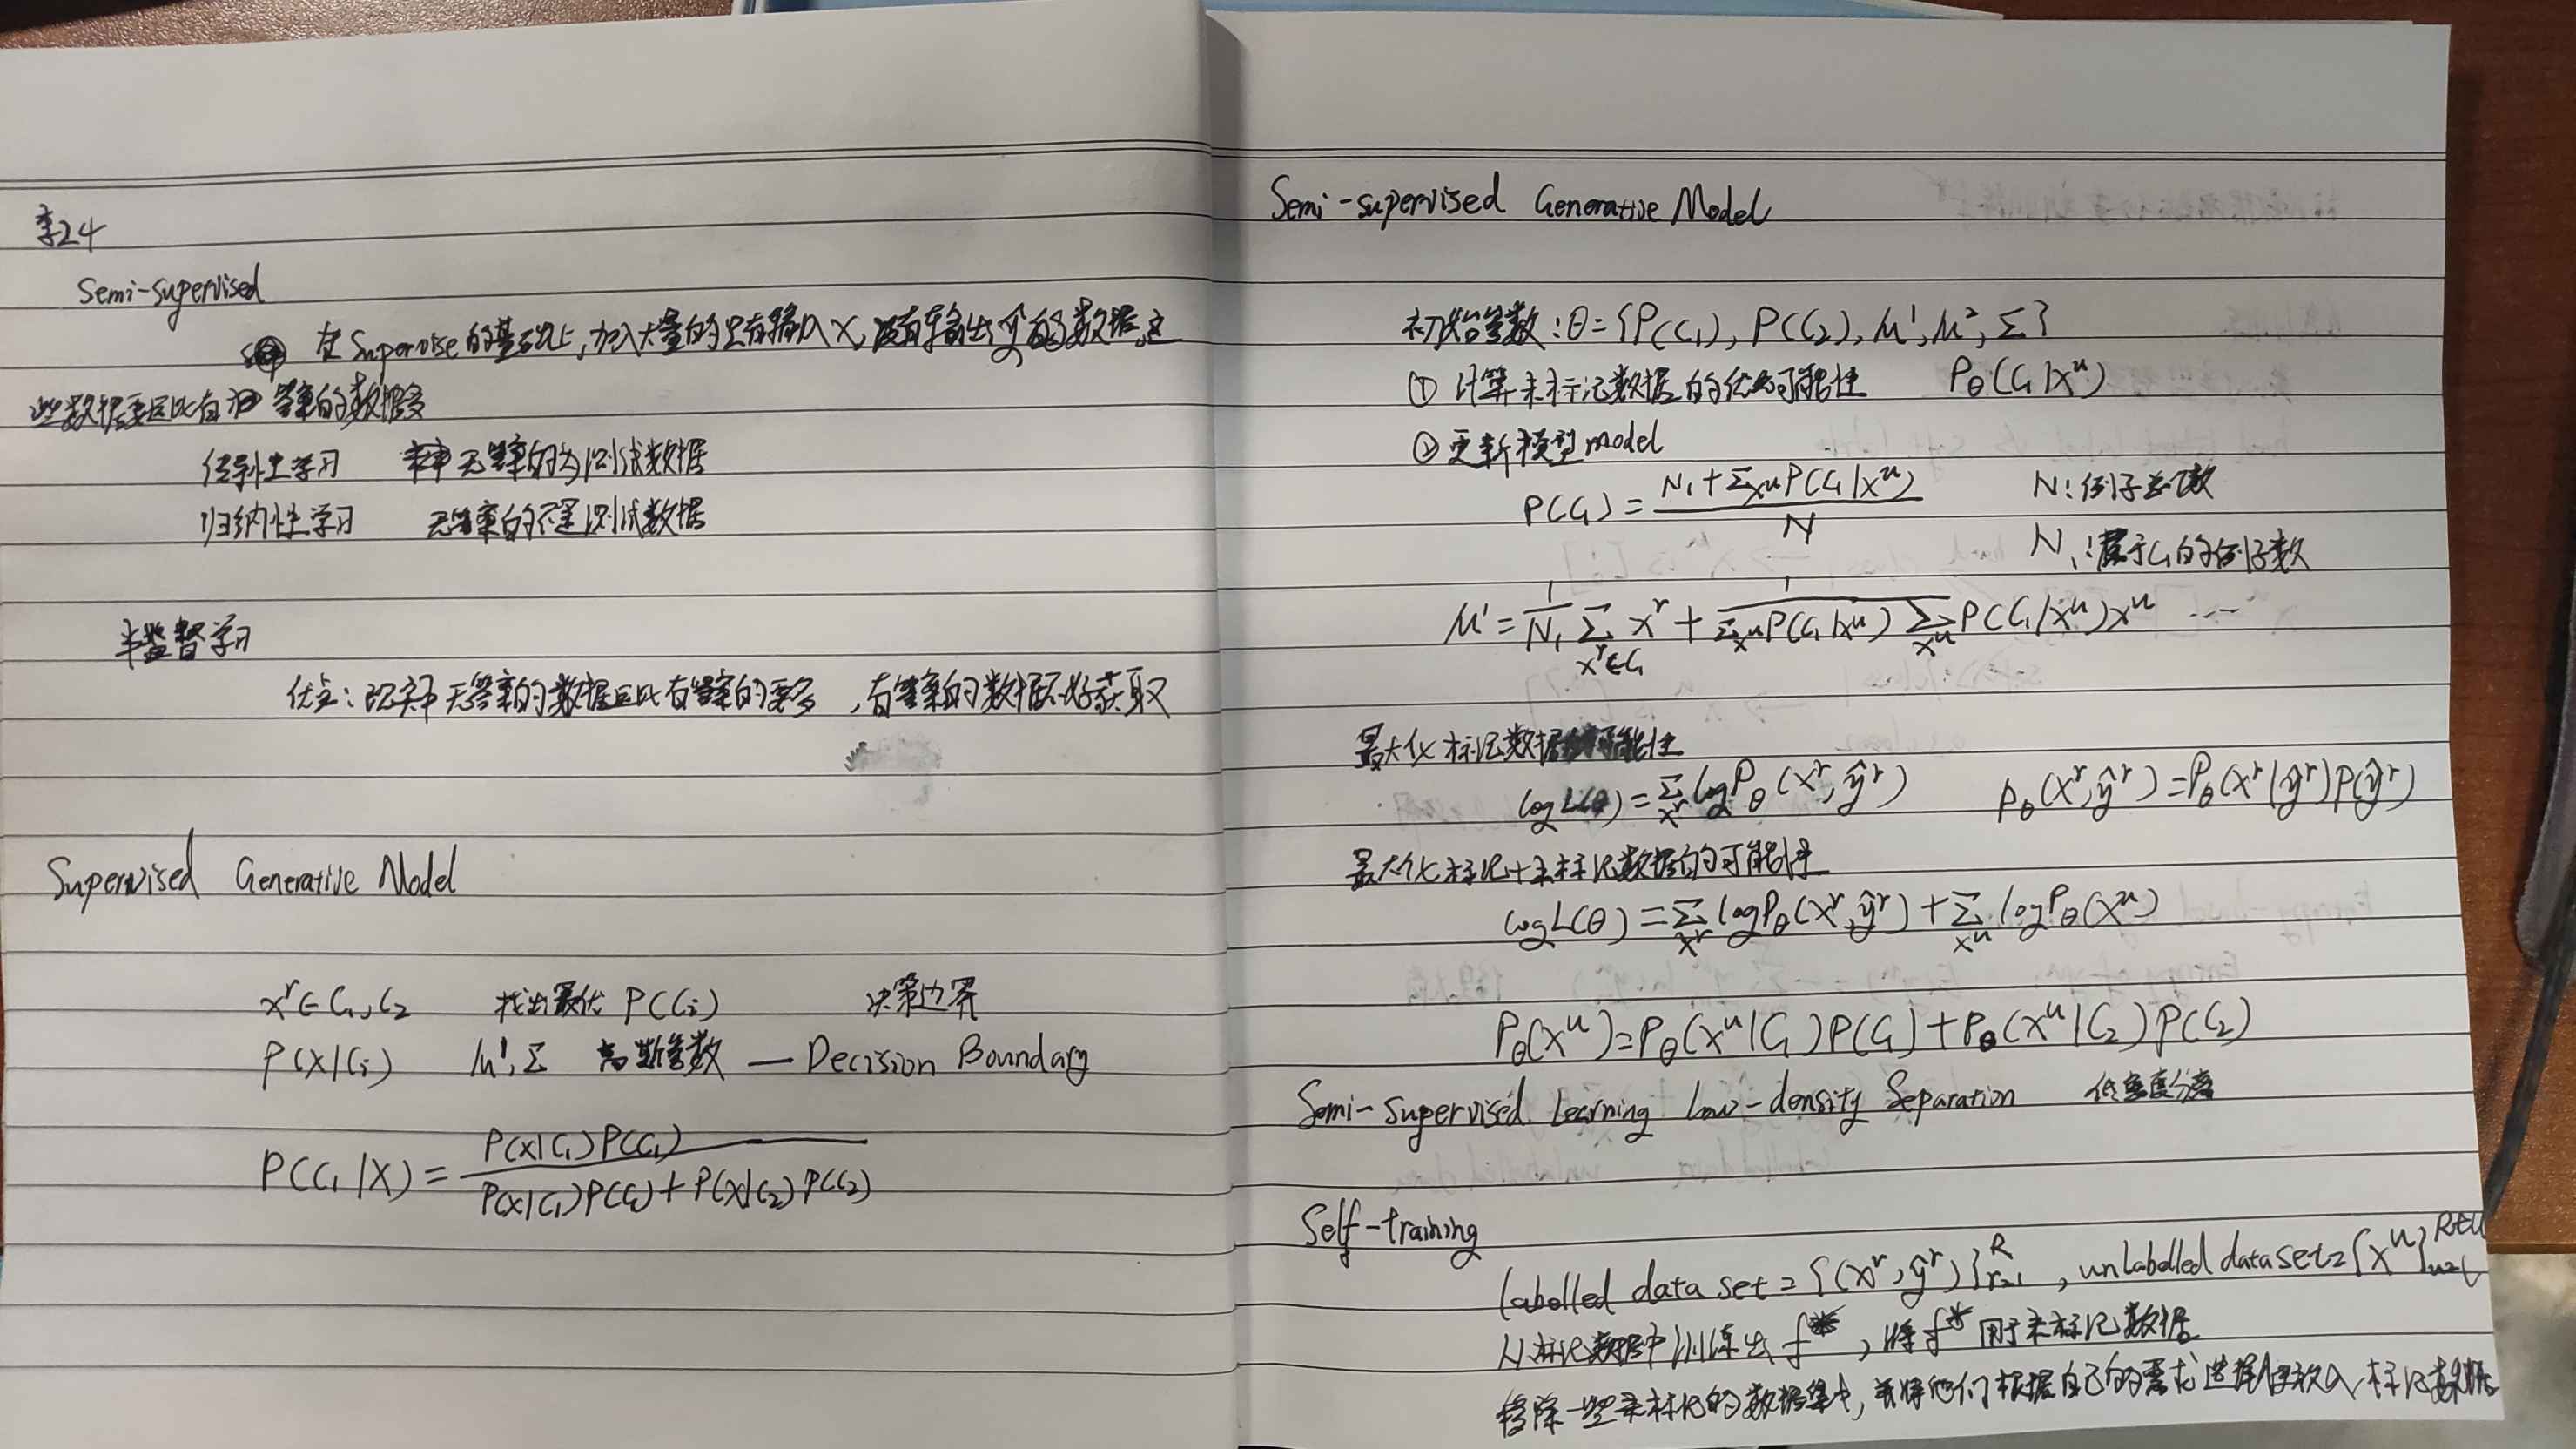 李24
Semi-supervised
在Supervise的基础上,加入大量的只有输入X,没有输出ŷ的数据,这
些数据要远比有 答案的数据多
传导性学习 无答案的为测试数据
归纳性学习 无答案的不是测试数据
半监督学习
优点:现实中无答案的数据远比有答案的要多,有答案的数据不好获取
Supervised Generative Model
xʳ∈C₁,C₂ 找出最优 P(Cᵢ) 决策边界
P(X|Cᵢ) μ¹,Σ 高斯参数 — Decision Boundary
P(C₁|X) = P(X|C₁)P(C₁) / P(X|C₁)P(C₁)+P(X|C₂)P(C₂)
Semi-supervised Generative Model
初始参数:θ={P(C₁),P(C₂),μ¹,μ²,Σ}
① 计算未标记数据的 可能性 Pθ(C₁|xᵘ)
② 更新模型model
P(C₁) = N₁+Σxᵘ P(C₁|xᵘ) / N N:例子总数
N₁:属于C₁的例子数
μ¹ = 1/N₁ Σ xʳ∈C₁ xʳ + 1/Σxᵘ P(C₁|xᵘ) Σxᵘ P(C₁|xᵘ)xᵘ ...
最大化标记数据 可能性
logL(θ) = Σxʳ logPθ(xʳ,ŷʳ) Pθ(xʳ,ŷʳ)=Pθ(xʳ|ŷʳ)P(ŷʳ)
最大化标记+未标记数据的可能性
logL(θ) = Σxʳ logPθ(xʳ,ŷʳ)+Σxᵘ logPθ(xᵘ)
Pθ(xᵘ)=Pθ(xᵘ|C₁)P(C₁)+Pθ(xᵘ|C₂)P(C₂)
Semi-supervised Learning Low-density Separation 低密度分离
Self-training
labelled data set = {(xʳ,ŷʳ)}ᴿᵣ₌₁, unlabelled data set={xᵘ}ᴿ⁺ᵁᵤ₌ₗ
从标记数据中训练出 f*,将f*用于未标记数据
移除一些未标记的数据集中,并将他们根据自己的需求选择 放入标记数据